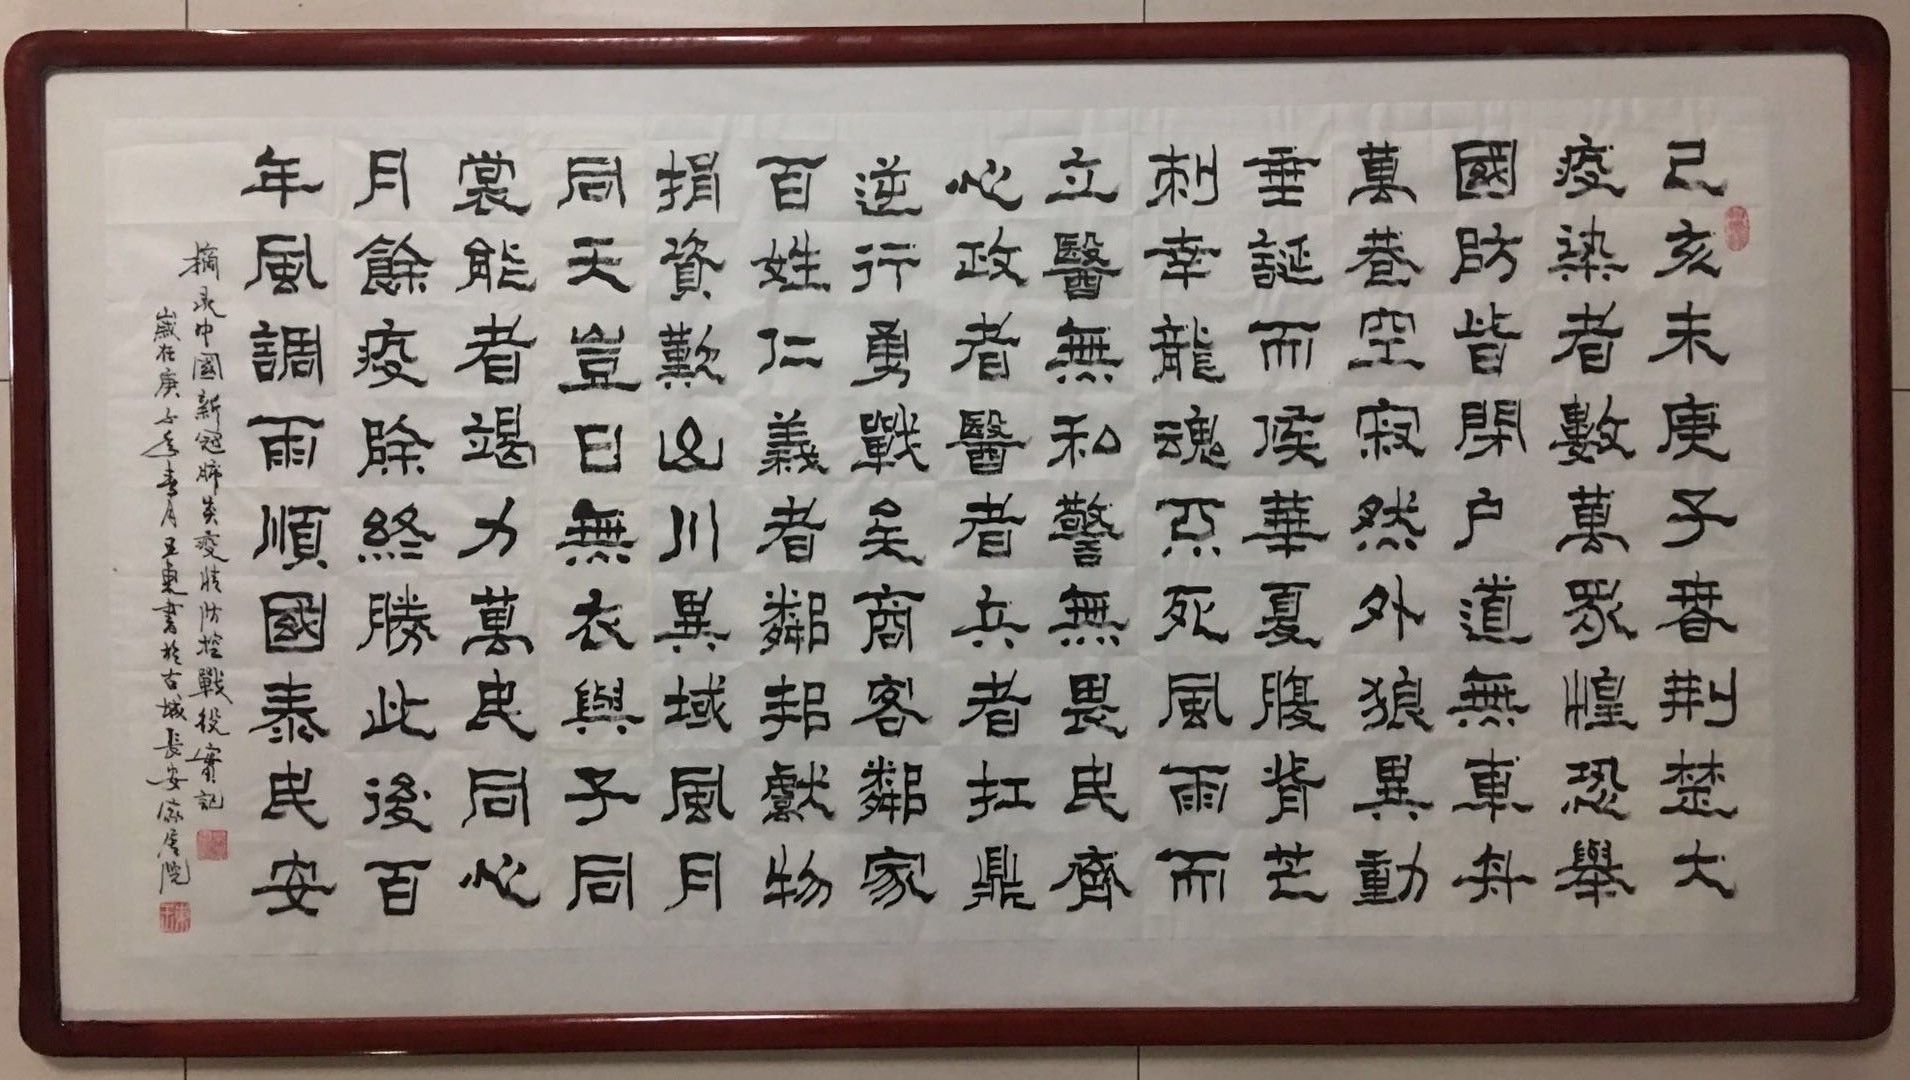 己亥末庚子春荆楚大
疫染者數萬眾惶恐舉
國防皆閉户道無車舟
萬巷空寂然外狼異動
垂誕而候華夏腹背芒
刺幸龍魂不死風雨而
立醫無私警無畏民齊
心政者醫者兵者扛鼎
逆行勇戰矣商客鄰家
百姓仁義者鄰邦獻物
捐資歎山川異域風月
同天豈曰無衣與子同
裳能者竭力萬民同心
月餘疫除終勝此後百
年風調雨順國泰民安
摘录中國新冠肺炎疫情防控戰役實記
歲在庚子年春月王東書於古城長安 居院